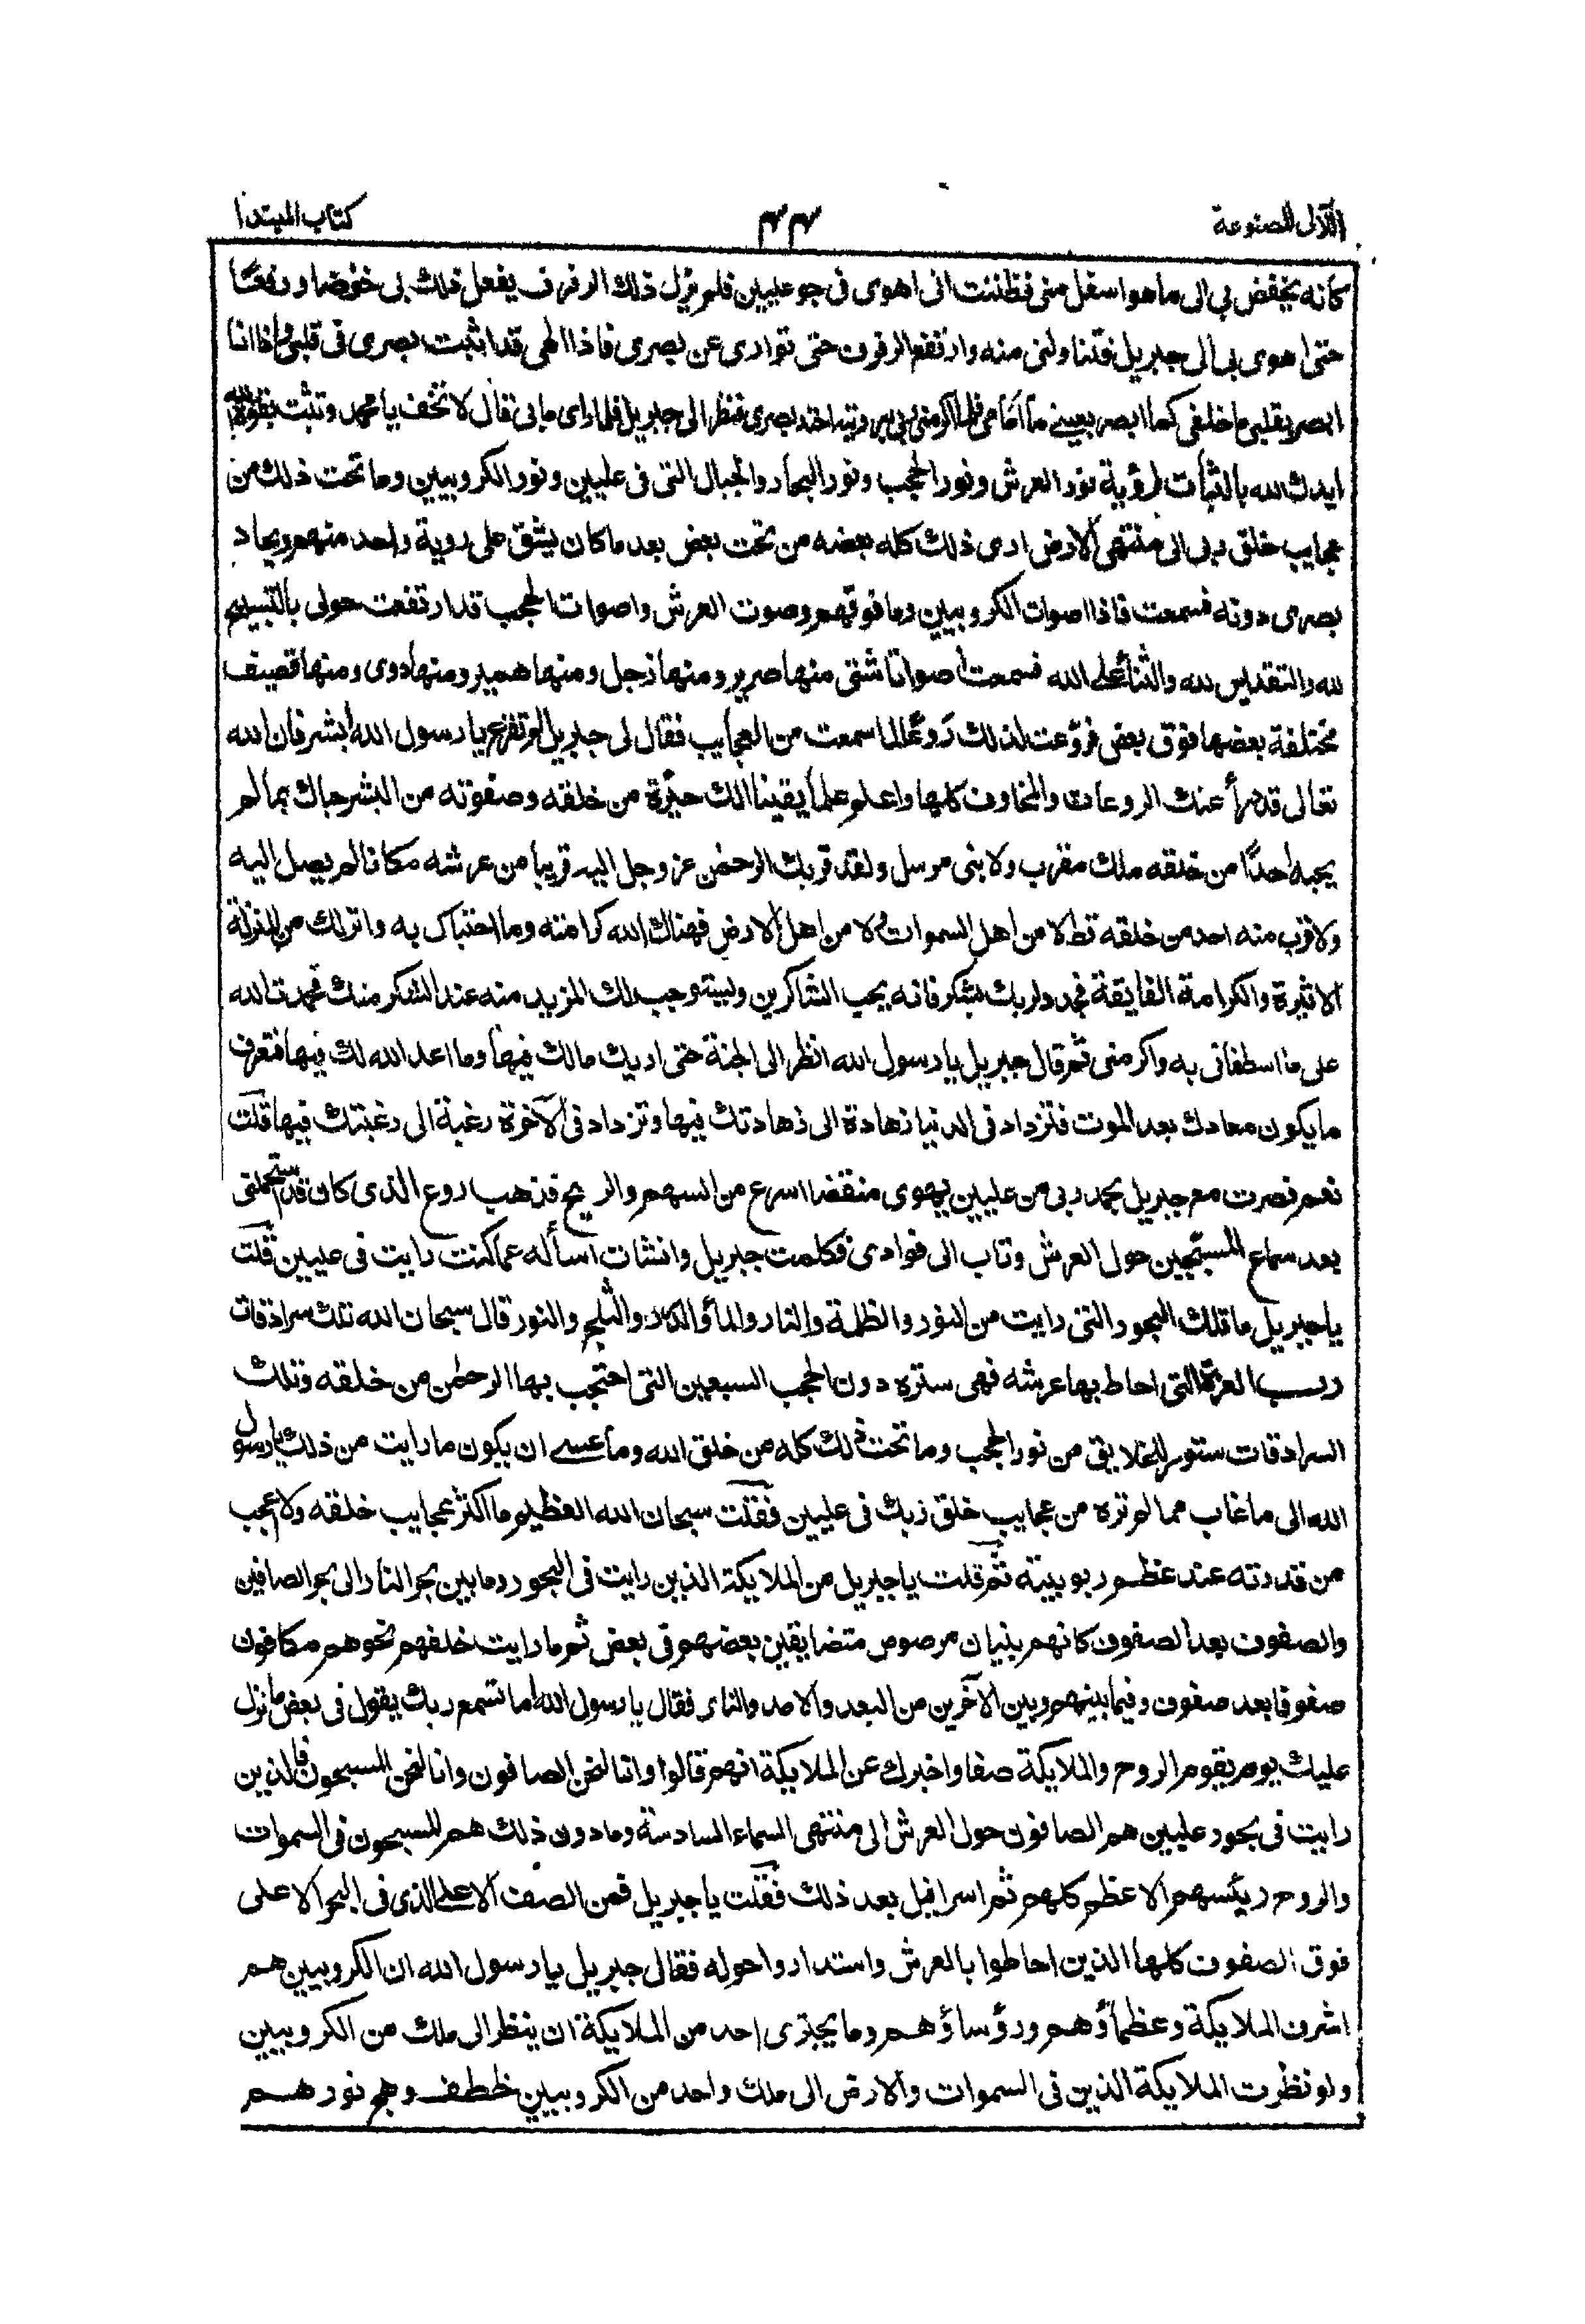 اللآلى المصنوعة ٤٤ كتاب المبتدا
كانه يخفض بى الى ما هو اسفل منى فظننت انى اهوى فى جو عليين فلم يزل ذلك الرفرف يفعل ذلك بى خفضا ورفعًا
حتى اهوى بى الى جبريل فتناولنى منه وارتفع الرفرف حتى توارى عن بصرى فاذا الهى قد اثبت بصرى فى قلبى واذا انا
ابصر بقلبى ما خلفى كما ابصر بعينى ما امامى فلما اكرمنى ربى برويته احتد بصرى فنظر الى جبريل فلما راى ما بى قال لا تخف يا محمد وتثبت بقوة الله
ايدك الله بالثبات لرؤية نور العرش ونور الحجب ونور البحار والجبال التى فى عليين ونور الكروبيين وما تحت ذلك من
عجايب خلق ربى الى منتهى الارض ارى ذلك كله بعضه من تحت بعض بعد ما كان يشق على روية واحد منهم ويحاد
بصرى دونه فسمعت فاذا اصوات الكروبيين وما فوقهم وصوت العرش واصوات الحجب قد ارتفعت حولى بالتسبيح
لله والتقديس لله والثناء على الله فسمعت اصواتا شتى منها صرير ومنها زجل ومنها همير ومنها دوى ومنها قصيف
مختلفة بعضها فوق بعض فروعت لذلك روعًا لما سمعت من العجايب فقال لى جبريل لم تفزع يا رسول الله ابشر فان الله
تعالى قد درأ عنك الروعات والمخاوف كلها واعلم علما يقينا انك خيرة من خلقه وصفوته من البشر حباك بما لم
يحبه احدًا من خلقه ملك مقرب ولا نبى مرسل ولقد قربك الرحمن عز وجل اليه قريبا من عرشه مكانا لم يصل اليه
ولا قرب منه احد من خلقه قط لا من اهل السموات ولا من اهل الارض فهناك الله كرامته وما اجتباك به وانزلك من المنزلة
الاثيرة والكرامة الفايقة فجدد لربك شكر فانه يحب الشاكرين ويستوجب لك المزيد منه عند الشكر منك فحمدت الله
على ما اصطفانى به واكرمنى ثم قال جبريل يا رسول الله انظر الى الجنة حتى اريك مالك فيها وما اعد الله لك فيها فتعرف
ما يكون معادك بعد الموت فتزداد فى الدنيا زهادة الى زهادتك فيها وتزداد فى الآخرة رغبة الى رغبتك فيها قلت
نعم فصرت مع جبريل بحمد ربى من عليين يهوى منقضا اسرع من السهم والريح فذهب روع الذى كان قد استحملنى
بعد سماع المسبحين حول العرش وتاب الى فوادى فكلمت جبريل وانشات اسأله عما كنت رايت فى عليين قلت
يا جبريل ما تلك البحور التى رايت من النور والظلمة والنار والماء والدر والثلج والنور قال سبحان الله تلك سرادقات
رب العزة التى احاط بها عرشه فهى ستره دون الحجب السبعين التى احتجب بها الرحمن من خلقه وتلك
السرادقات ستور للخلايق من نور الحجب وما تحت ذلك كله من خلق الله وما عسى ان يكون ما رايت من ذلك يا رسول
الله الى ما غاب مما لم تره من عجايب خلق ربك فى عليين فقلت سبحان الله العظيم ما اكثر عجايب خلقه ولا عجب
من قدرته عند عظم ربوبيته ثم قلت يا جبريل من الملايكة الذين رايت فى البحور وما بين بحر النار الى بحر الصافين
والصفوف بعد الصفوف كانهم بنيان مرصوص متضايقين بعضهم فى بعض ثم ما رايت خلفهم نحوهم مكافون
صفوفا بعد صفوف وفيما بينهم وبين الآخرين من البعد والامد والنار فقال يا رسول الله اما تسمع ربك يقول فى بعض ما نزل
عليك يوم يقوم الروح والملايكة صفا واخبرك عن الملايكة انهم قالوا وانا لنحن الصافون وانا لنحن المسبحون فالذين
رايت فى بحور عليين هم الصافون حول العرش الى منتهى السماء السادسة وما دون ذلك هم المسبحون فى السموات
والروح رئيسهم الاعظم كلهم ثم اسرافيل بعد ذلك فقلت يا جبريل فمن الصف الاعلى الذى فى البحر الاعلى
فوق الصفوف كلها الذين احاطوا بالعرش واستداروا حوله فقال جبريل يا رسول الله ان الكروبيين هم
اشرف الملايكة وعظماؤهم ورؤساؤهم وما يجترى احد من الملايكة ان ينظر الى ملك من الكروبيين
ولو نظرت الملايكة الذين فى السموات والارض الى ملك واحد من الكروبيين لخطف وهج نورهم